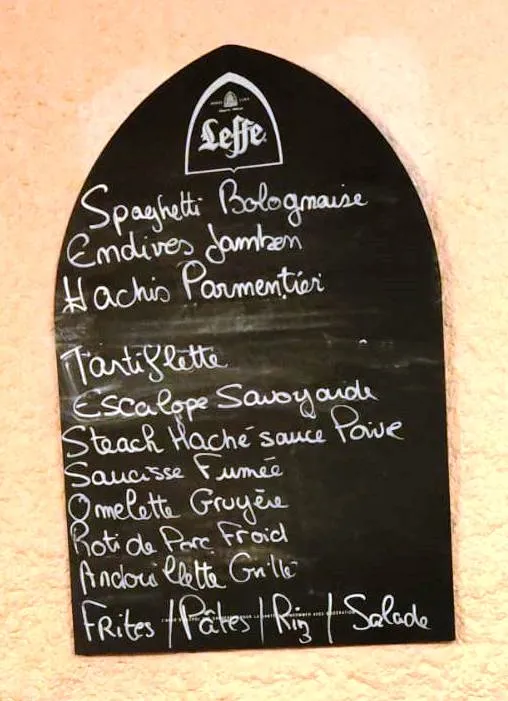 Leffe
Spaghetti Bolognaise
Endives Jambon
Hachis Parmentier
Tartiflette
Escalope Savoyarde
Steach Haché sauce Poivre
Saucisse Fumée
Omelette Gruyère
Roti de Porc Froid
Andouillette Grillé
Frites / Pâtes / Riz / Salade